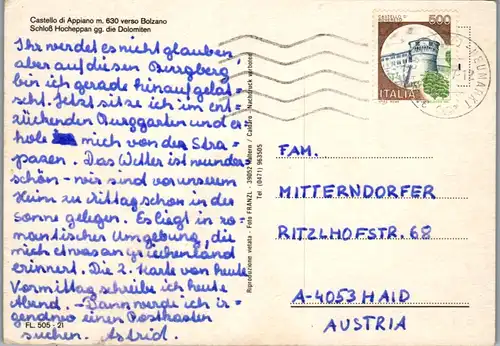 Castello di Appiano m. 630 verso Bolzano
Schloß Hocheppan gg. die Dolomiten
Ihr werdet es nicht glauben
aber auf diesen Burgberg
bin ich gerade hinaufgelat-
scht. Jetzt sitze ich im ent-
zückenden Burggarten und er
hole mich von den Stra-
pazen. Das Wetter ist wunder
schön - wir sind vor unserem
Heim zu Mittag schon in der
Sonne gelegen. Es liegt in ro-
mantischer Umgebung, die
mich etwas an Griechenland
erinnert. Die 2. Karte von heute
Vormittag schreibe ich heute
Abend. - Dann werde ich ir-
gendwo einen Postkasten
suchen. Astrid.
FL. 505 - 21
Riproduzione vietata - Foto FRANZL - 39052 Kaltern / Caldaro - Nachdruck verboten
Tel (0471) 963505
500
ITALIA
NEUMARKT
FAM.
MITTERNDORFER
RITZLHOFSTR. 68
A-4053 HAID
AUSTRIA